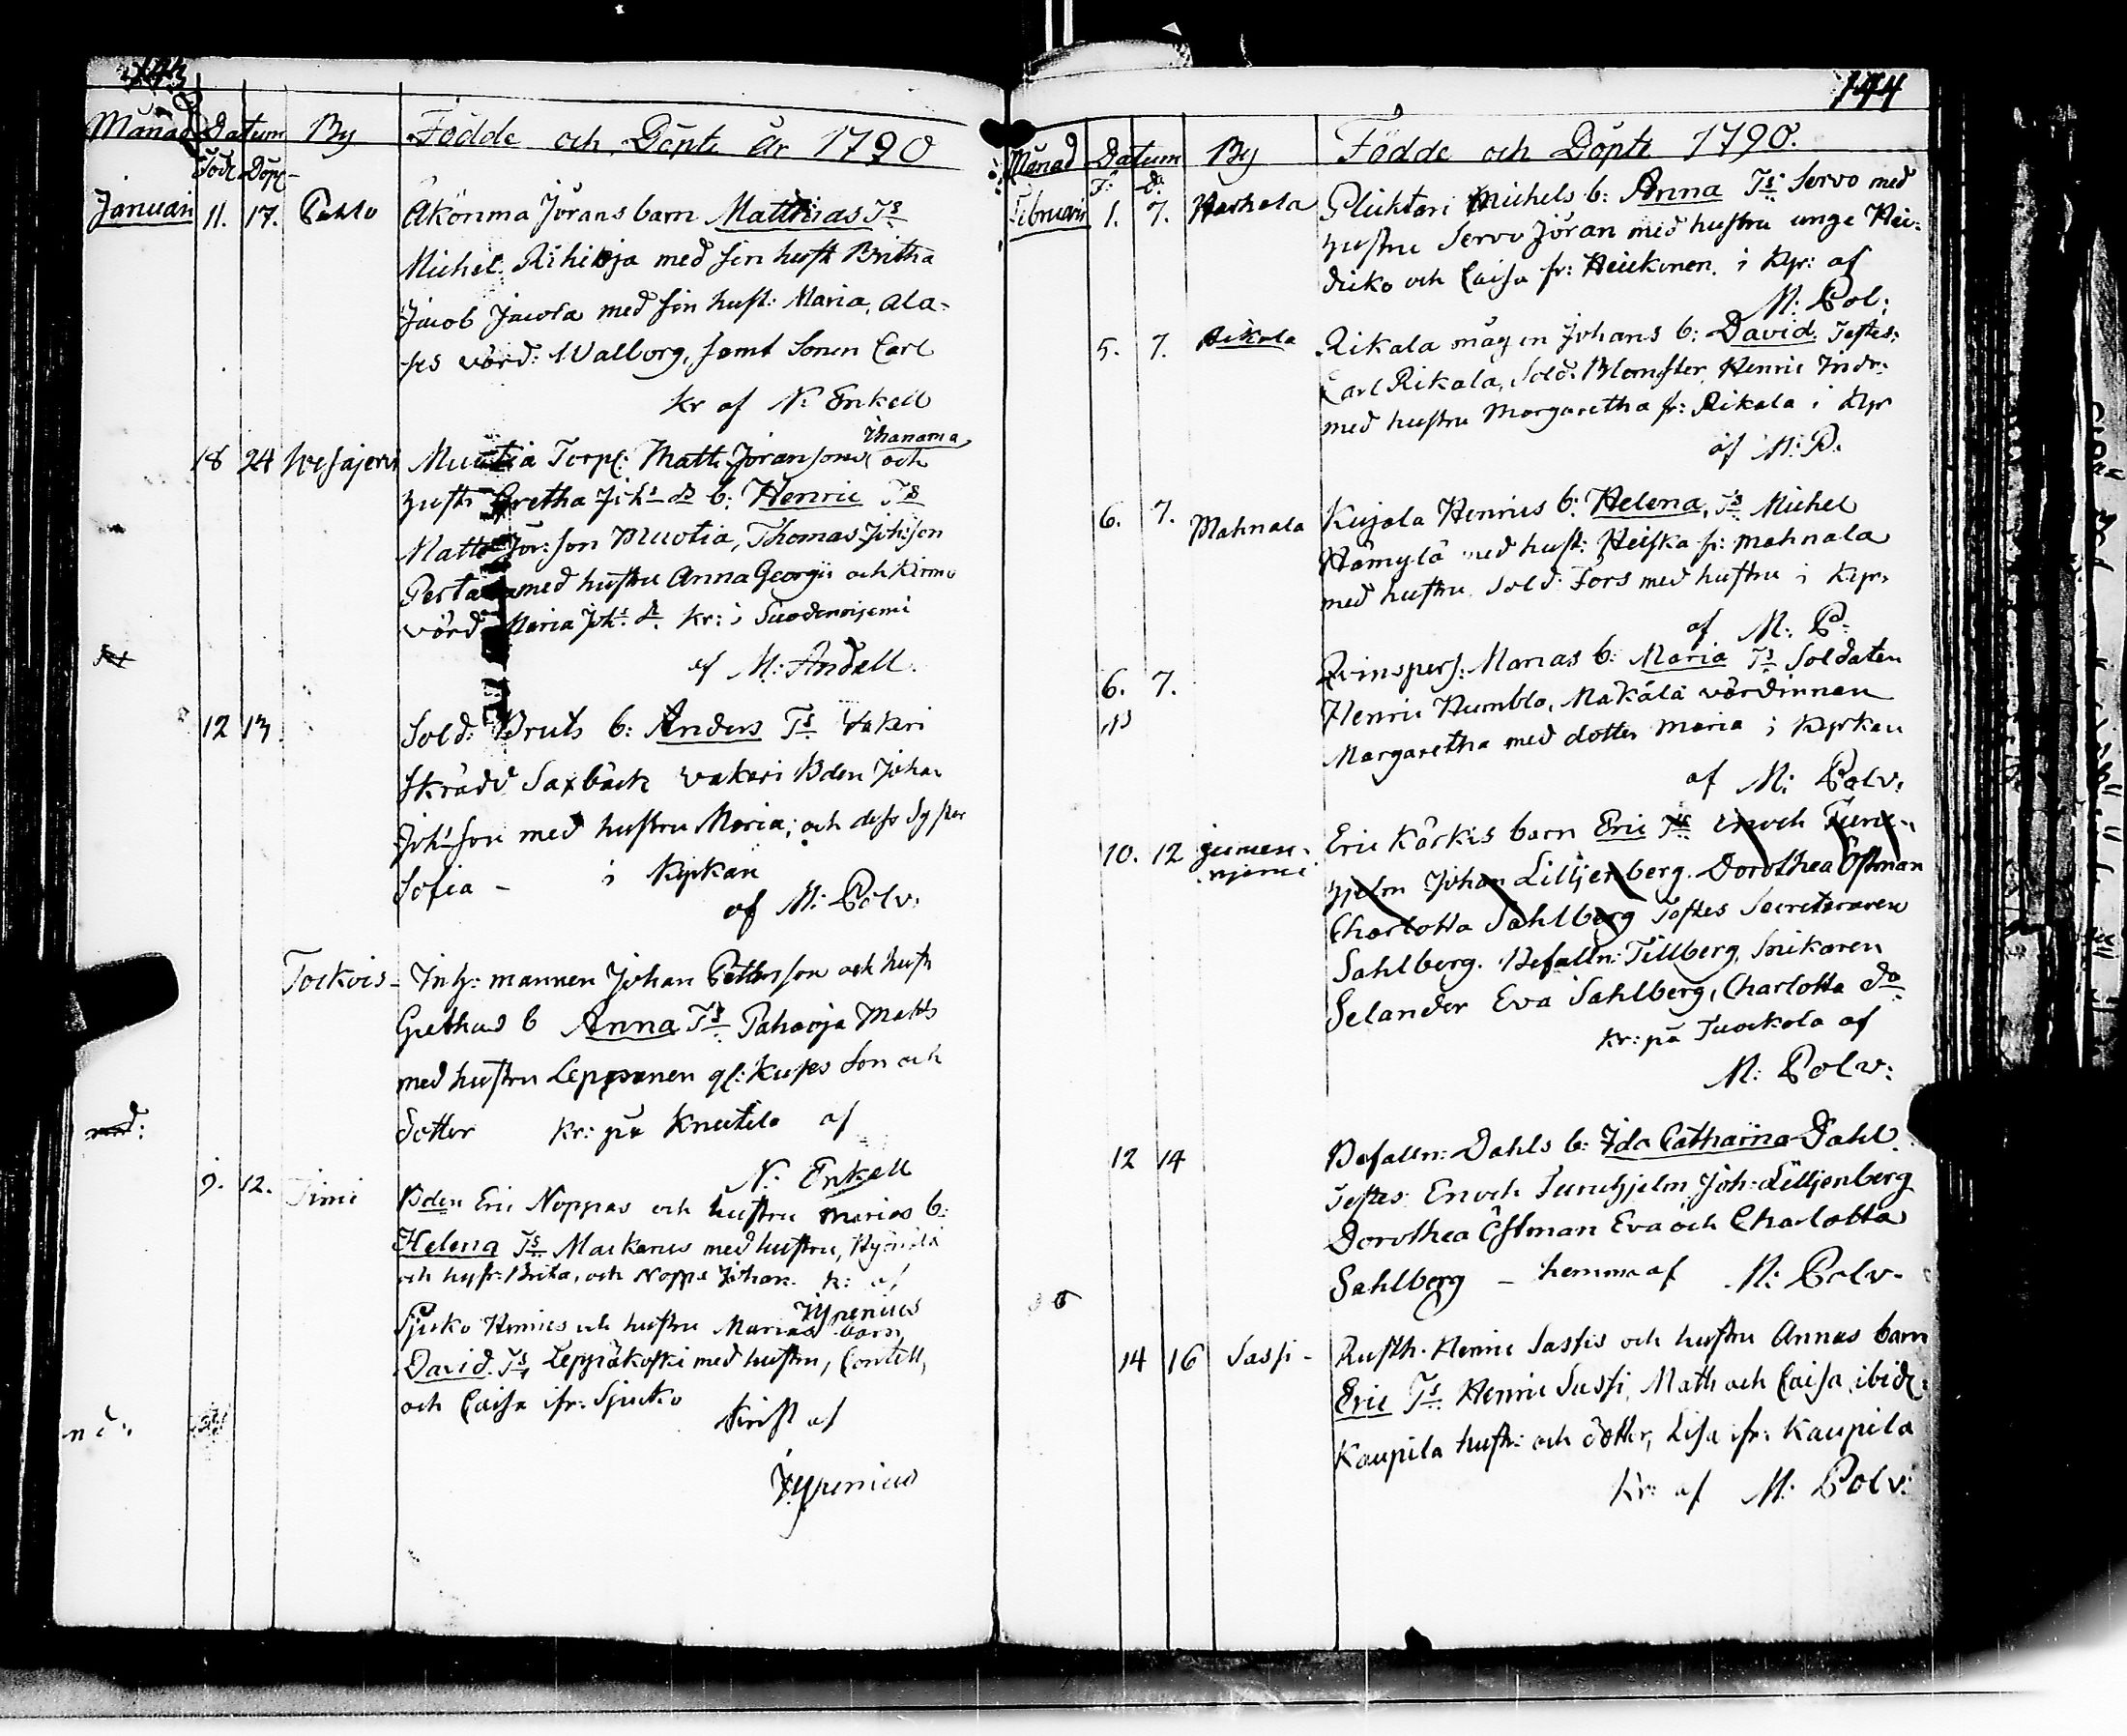 Månad Datum By Födde och Döpte år 1790
Född Döpt
Januari 11. 17. Pahlo Äkönma Jörans barn Matthias Ts
Michel Rihioja med sin hustr Britha
Jacob Jacola med sin hust: Maria, Ala-
pis värd: Walborg, samt Sonen Carl
kr af N: Enkell
Ihanama
18 24 Wesajervi Muotia Torp: Matts Jöransons och
hustr Gretha Johs dr b: Henric Ts
Matts Jör: son Muotia, Thomas Joh:son
Perta med hustru Anna Georgii och Kirmo
värd Maria Joh: dr. kr: i Suodenniemi
af M: Andell.
12 13 Sold: Bruts b: Anders Ts Vakeri
Skrädd Saxbäck Vakeri Bden Johan
Joh:son med hustru Maria, och dess Syster
Sofia - i Kyrkan
af M: Polv:
Torkois- Inh: mannen Johan Pettersson och hustr
Grethas b Anna Ts Pahaoja Matts
med hustru Leppänen gl: Kupes Son och
Dotter kr: på Knutila af
N: Enkell
9. 12. Timi Bden Eric Noppas och hustru Marias b:
Helena Ts Markanus med hustru, Kyönilä
och hustr: Brita, och Noppa Johan. k: af
Yypenius
Sjuko Henrics och hustru Marias barn
David. Ts, Leppäkoski med hustru, Contell,
och Caisa ifr: Sjuko
Krist af
Yypenius
144
Månad Datum By Födde och Döpte 1790.
F: D:
Februari 1. 7. Harhala Plihtari Michels b: Anna Ts: Servo med
hustru Servo Jöran med hustru unge Hei-
dicko och Caisa fr: Heickinen. i Kyr: af
M: Pol:
5. 7. Rikala Rikala mågen Johans b: David. Testes:
Carl Rikala, Sold: Blomster, Henric Indr:
med hustru Margaretha fr: Rikala i Kyr
af M: P.
6. 7. Mahnala Kujala Henrics b: Helena, Ts Michel
Hämylä med hust: Heiska fr: Mahnala
med hustru Sold: Fors med hustru i Kyr.
af M: P:
6. 7. Qvinspers: Marias b: Maria Ts Soldaten
Henric Humblo, Makälä värdinnan
Margaretha med dotter Maria i Kyrkan
af M: Polv:
10. 12 Jumes-niemi Eric Kärkis barn Eric Ts Enoch Furu-
hjelm Johan Lilljenberg. Dorothea Östman
Charlotta Sahlberg Testes Secreteraren
Sahlberg. Befalln: Tillberg, Snikaren
Selander Eva Sahlberg, Charlotta do
kr: på Tuockola af
M: Polv:
12 14 Befalln: Dahls b: Ida Catharina Dahl
Testes Enoch Furuhjelm Joh: Lilljenberg
Dorothea Östman Eva och Charlotta
Sahlberg - hemma af M: Polv.
14 16 Sassi- Rusth. Henric Sassis och hustru Annas barn
Eric Ts Henric Sassi, Math och Caisa, ibid:
Kaupila hustr: och dotter, Lisa ifr: Kaupila
kr: af M: Polv: